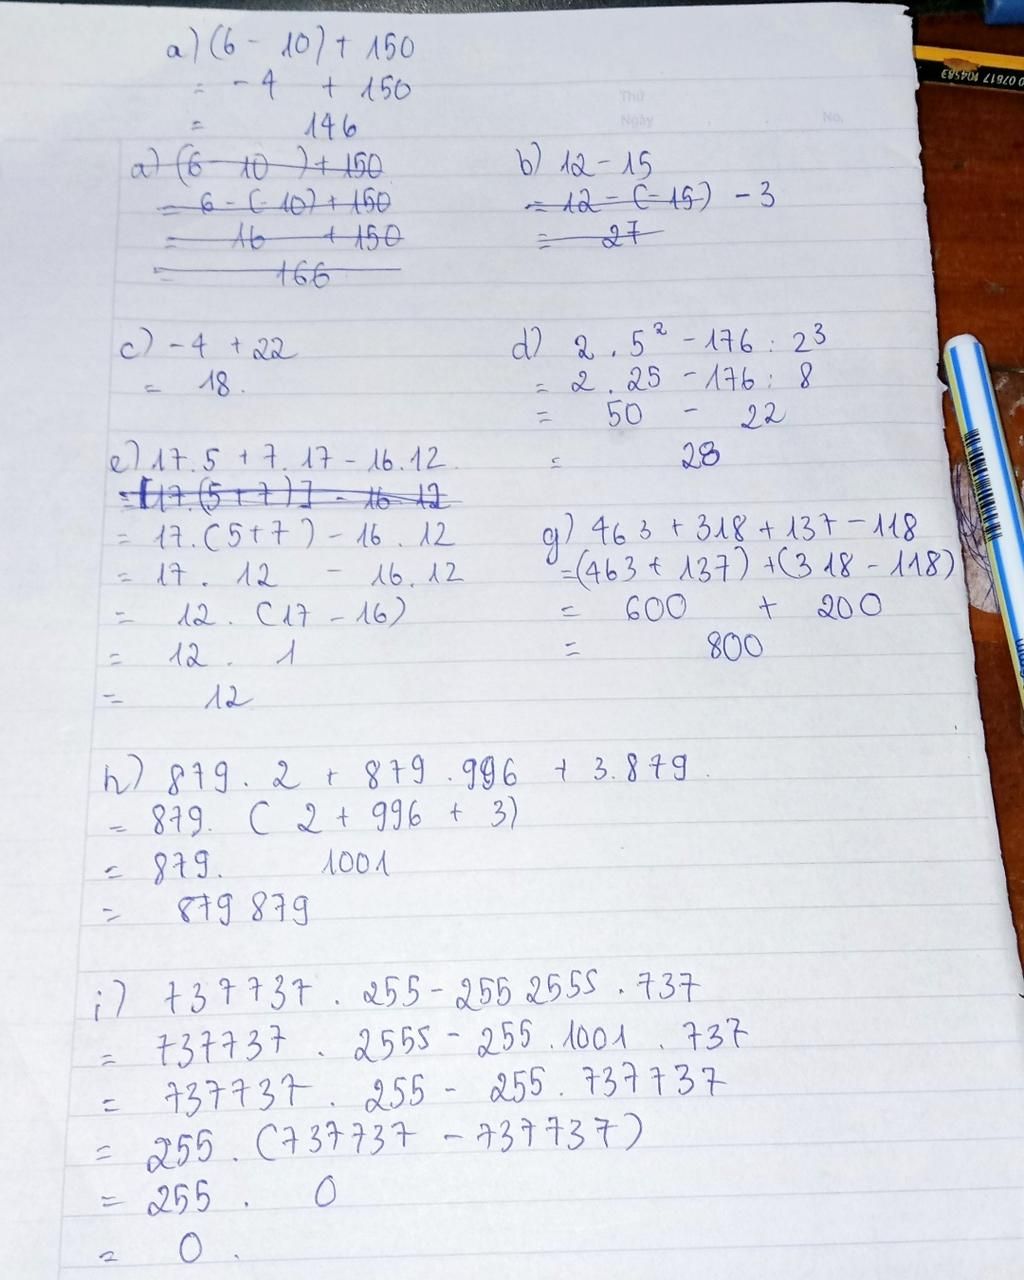 a) (6 - 10) + 150
= -4 + 150
= 146
a) (6 10 ) + 150
= 6 - (-10) + 150
= 16 + 150
= 166
b) 12 - 15
= 12 - (-15) - 3
= 27
c) -4 + 22
= 18.
d) 2 . 5² - 176 : 2³
= 2 . 25 - 176 : 8
= 50 - 22
= 28
e) 17.5 + 7.17 - 16.12
= [17.(5+7)] - 16 12
= 17.(5+7) - 16 . 12
= 17 . 12 - 16.12
= 12 . (17 - 16)
= 12 . 1
= 12
g) 463 + 318 + 137 - 118
= (463 + 137) + (318 - 118)
= 600 + 200
= 800
h) 879 . 2 + 879 . 996 + 3.879.
= 879. ( 2 + 996 + 3)
= 879. 1001
= 879 879
i) 737737 . 255 - 255 2555 . 737
= 737737 . 2555 - 255 . 1001 . 737
= 737737 . 255 - 255 . 737737
= 255 . (737737 - 737737)
= 255 . 0
= 0 .
Thứ
Ngày No.